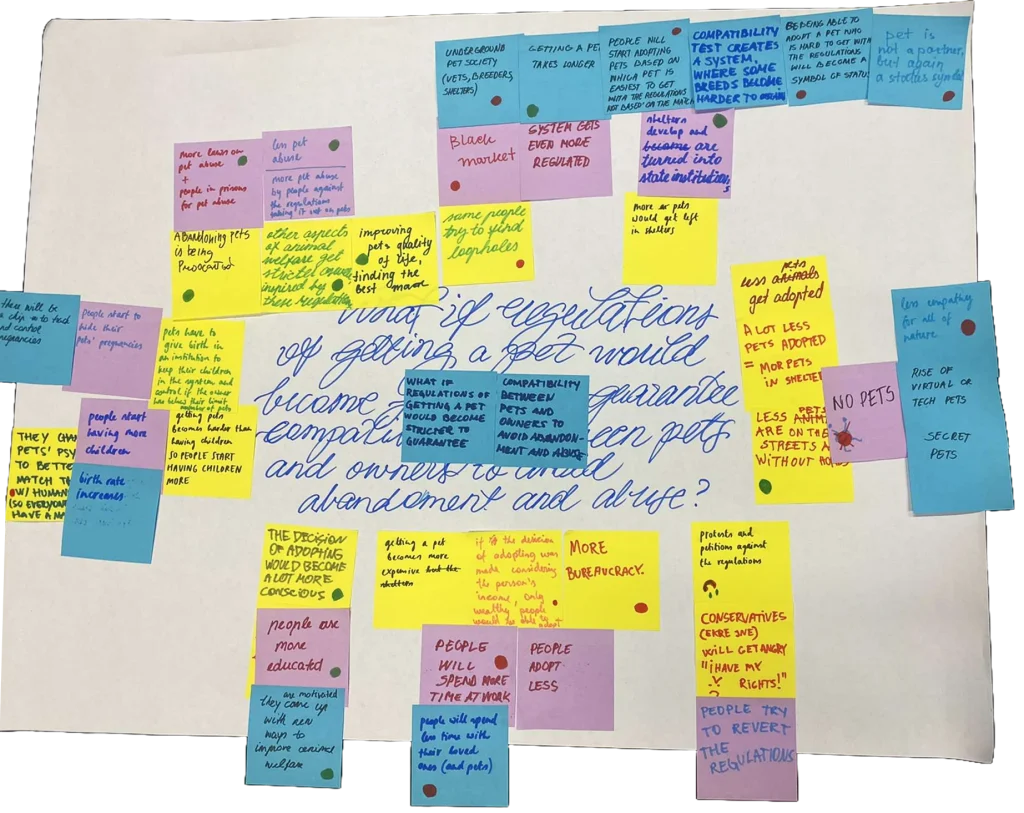 UNDERGROUND
PET SOCIETY
(VETS, BREEDERS,
SHELTERS)
GETTING A PET
TAKES LONGER
PEOPLE WILL
START ADOPTING
PETS BASED ON
WHICH PET IS
EASIEST TO GET
WITH THE REGULATIONS
NOT BASED ON THE MATCH
COMPATIBILITY
TEST CREATES
A SYSTEM,
WHERE SOME
BREEDS BECOME
HARDER TO
BEING ABLE TO
ADOPT A PET WHO
IS HARD TO GET WITH
THE REGULATIONS
WILL BECOME A
SYMBOL OF STATUS
pet is
not a partner,
but again
a status symbol
more laws on
pet abuse
+
people in prisons
for pet abuse
less pet
abuse
more pet abuse
by people against
the regulations
taking it out on pets
Black
market
SYSTEM GETS
EVEN MORE
REGULATED
shelters
develop and
become are
turned into
state institutions
ABANDONING PETS
IS BEING
other aspects
of animal
welfare get
stricter
inspired by
these regulations
improving
pets quality
of life,
finding the
best
some people
try to find
loopholes
more pets
would get left
in shelters
there will be
a chip to
and control
pregnancies
people start to
hide their
pets' pregnancies
pets have to
give birth in
an institution to
keep their children
in the system and
control if the owner
has taken their limit
number of pets
people start
having more
children
getting pets
becomes harder than
having children
so people start
HAVING CHILDREN
MORE
THEY
PETS'
TO BETTER
MATCH
W/ HUMAN
(SO EVERYONE
HAVE A
birth rate
increases
What if regulations
of getting a pet would
become
guarantee
between pets
and owners to avoid
abandoment and abuse?
WHAT IF
REGULATIONS OF
GETTING A PET
WOULD BECOME
STRICTER TO
GUARANTEE
COMPATIBILITY
BETWEEN
PETS AND
OWNERS TO
AVOID ABANDON-
MENT AND ABUSE
less animals pets
get adopted
A LOT LESS
PETS ADOPTED
= MOR PETS
IN SHELTER
LESS PETS
ARE ON THE
STREETS
WITHOUT
NO PETS
less empathy
for all of
nature
RISE OF
VIRTUAL OR
TECH PETS
SECRET
PETS
THE DECISION
OF ADOPTING
WOULD BECOME
A LOT MORE
CONSCIOUS
people are
more
educated
are motivated
they come up
with new
ways to
improve animal
welfare
getting a pet
becomes more
expensive but the
shelters
if the decision
of adopting was
made considering
the person's
income, only
wealthy people
would be able to adopt
MORE
BUREAUCRACY.
PEOPLE
WILL
SPEND MORE
TIME AT WORK
PEOPLE
ADOPT
LESS
people will spend
less time with
their loved
ones (and pets)
protests and
petitions against
the regulations
CONSERVATIVES
(EKRE JNE)
WILL GET ANGRY
"I HAVE MY
RIGHTS!"
PEOPLE TRY
TO REVERT
THE
REGULATIONS